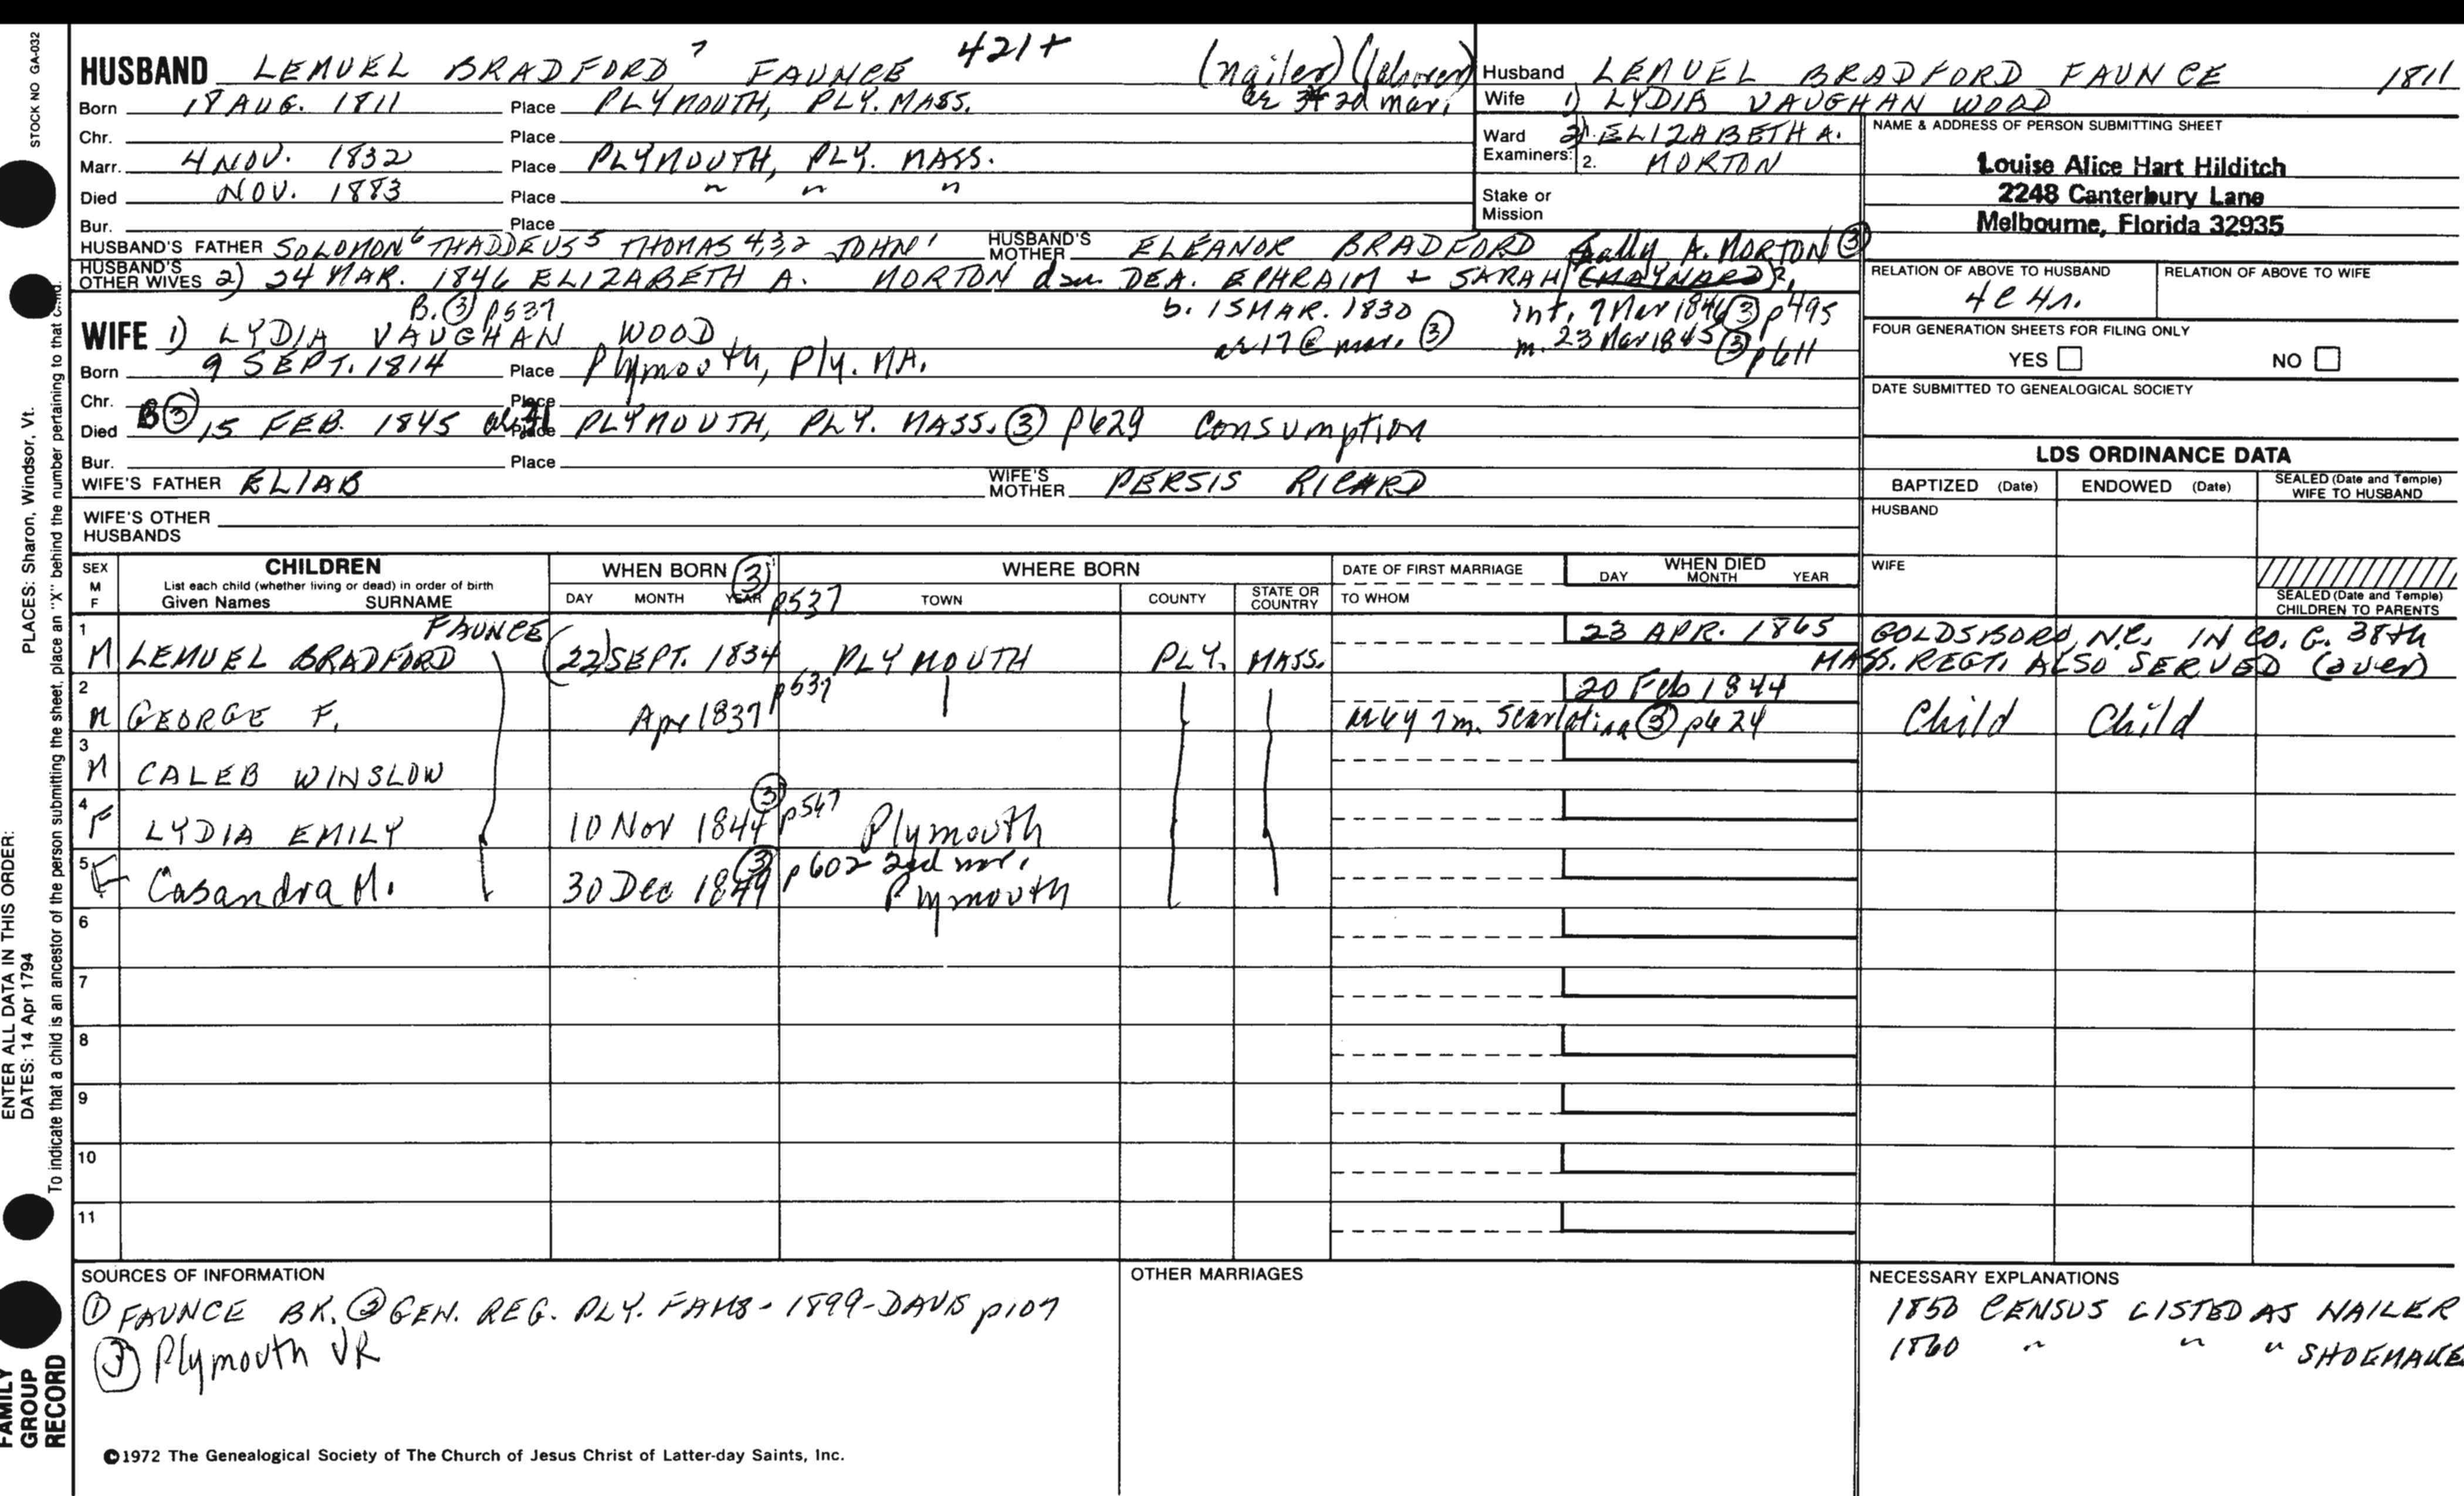 STOCK NO GA-032
PLACES: Sharon, Windsor, Vt.
ENTER ALL DATA IN THIS ORDER:
DATES: 14 Apr 1794
To indicate that a child is an ancestor of the person submitting the sheet, place an "X" behind the number pertaining to that child.
FAMILY GROUP RECORD
HUSBAND LEMUEL BRADFORD 7 FAUNCE 421+ (nailer) (laborer)
Born 18 AUG. 1811 Place PLYMOUTH, PLY. MASS. 2d mar.
Chr. Place
Marr. 4 NOV. 1832 Place PLYMOUTH, PLY. MASS.
Died NOV. 1883 Place " " "
Bur. Place
HUSBAND'S FATHER SOLOMON 6 THADDEUS 5 THOMAS 4,3,2 JOHN 1 HUSBAND'S MOTHER ELEANOR BRADFORD Sally A. MORTON ③
HUSBAND'S OTHER WIVES 2) 24 MAR. 1846 ELIZABETH A. MORTON dau. DEA. EPHRAIM + SARAH (MAYNARD)?
B. ③ p537 b. 15 MAR. 1830 int. 7 Mar 1846 ③ p495
WIFE 1) LYDIA VAUGHAN WOOD ae 17 @ mar. ③ m. 23 Mar 1845 ③ p611
Born 9 SEPT. 1814 Place Plymouth, Ply. MA.
Chr. Place
Died B ③ 15 FEB. 1845 Place PLYMOUTH, PLY. MASS. ③ p629 Consumption
Bur. Place
WIFE'S FATHER ELIAB WIFE'S MOTHER PERSIS RICARD
WIFE'S OTHER HUSBANDS
Husband LEMUEL BRADFORD FAUNCE 1811
Wife 1) LYDIA VAUGHAN WOOD
Ward Examiners: 2) ELIZABETH A.
2. MORTON
Stake or Mission
NAME & ADDRESS OF PERSON SUBMITTING SHEET
Louise Alice Hart Hilditch
2248 Canterbury Lane
Melbourne, Florida 32935
RELATION OF ABOVE TO HUSBAND RELATION OF ABOVE TO WIFE
4C 4r.
FOUR GENERATION SHEETS FOR FILING ONLY
YES NO
DATE SUBMITTED TO GENEALOGICAL SOCIETY
LDS ORDINANCE DATA
BAPTIZED (Date) ENDOWED (Date) SEALED (Date and Temple) WIFE TO HUSBAND
HUSBAND
WIFE
SEALED (Date and Temple) CHILDREN TO PARENTS
SEX M F CHILDREN List each child (whether living or dead) in order of birth Given Names SURNAME
WHEN BORN ③ DAY MONTH YEAR p537
WHERE BORN TOWN COUNTY STATE OR COUNTRY
DATE OF FIRST MARRIAGE TO WHOM
WHEN DIED DAY MONTH YEAR
FAUNCE 23 APR. 1865 GOLDSBORO, N.C. IN CO. G. 38th
1 M LEMUEL BRADFORD (22) SEPT. 1834 PLYMOUTH PLY. MASS. MASS. REGT. ALSO SERVED (over)
20 Feb 1844
2 M GEORGE F. Apr 1837 p537 ae 6y 7m. Scarlatina ③ p624 Child Child
3 M CALEB WINSLOW
4 F LYDIA EMILY 10 Nov 1844 ③ p547 Plymouth
5 F Casandra M. 30 Dec 1849 ③ p602 2nd mar. Plymouth
6
7
8
9
10
11
SOURCES OF INFORMATION
① FAUNCE BK. ② GEN. REG. PLY. FAMS - 1899 - DAVIS p107
③ Plymouth VR
OTHER MARRIAGES
NECESSARY EXPLANATIONS
1850 CENSUS LISTED AS NAILER
1860 " " " SHOEMAKE
©1972 The Genealogical Society of The Church of Jesus Christ of Latter-day Saints, Inc.